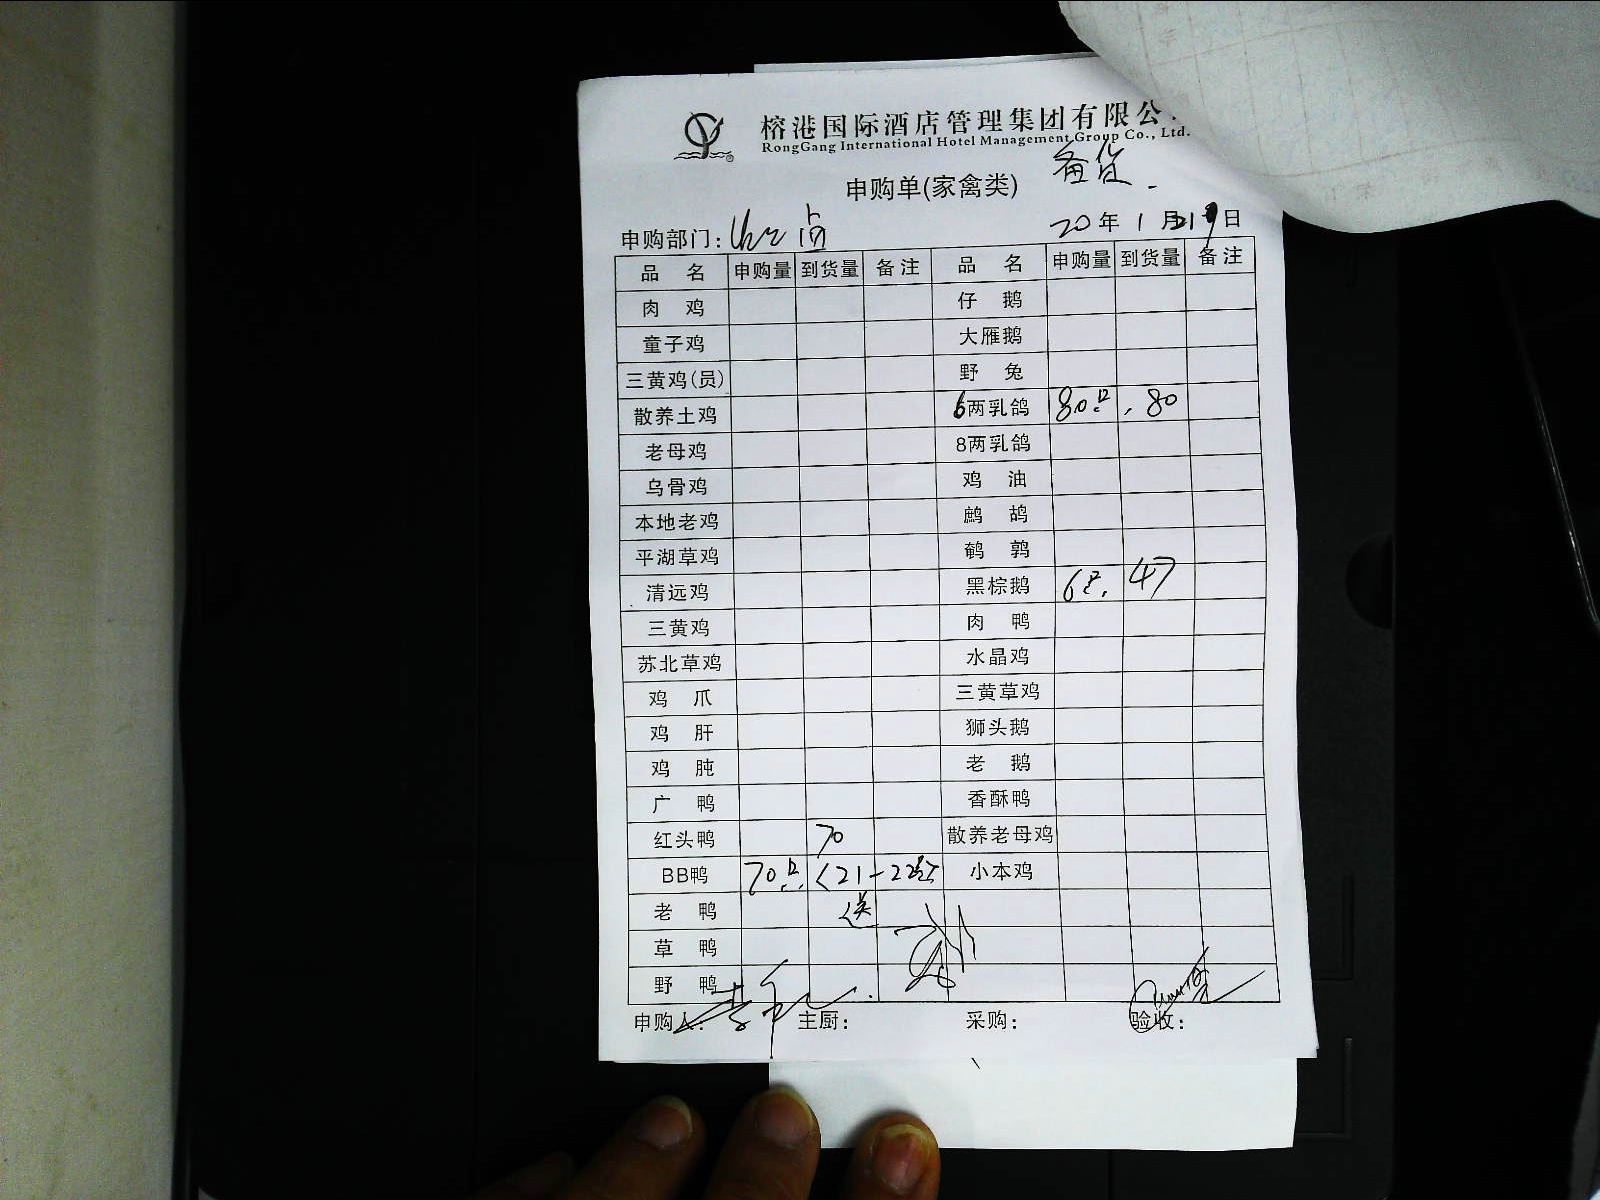 榕港国际酒店管理集团有限公
RongGang International Hotel Management Group Co., Ltd.
备货
申购单(家禽类)
申购部门: 20年1月19日
品名 申购量 到货量 备注 品名 申购量 到货量 备注
肉鸡 仔鹅
童子鸡 大雁鹅
三黄鸡(员) 野兔
散养土鸡 6两乳鸽 80只 80
老母鸡 8两乳鸽
乌骨鸡 鸡油
本地老鸡 鹧鸪
平湖草鸡 鹌鹑
清远鸡 黑棕鹅 6只 47
三黄鸡 肉鸭
苏北草鸡 水晶鸡
鸡爪 三黄草鸡
鸡肝 狮头鹅
鸡肫 老鹅
广鸭 香酥鸭
红头鸭 70 散养老母鸡
BB鸭 70只 <21-22 小本鸡
老鸭 送
草鸭
野鸭
申购人: 主厨: 采购: 验收: